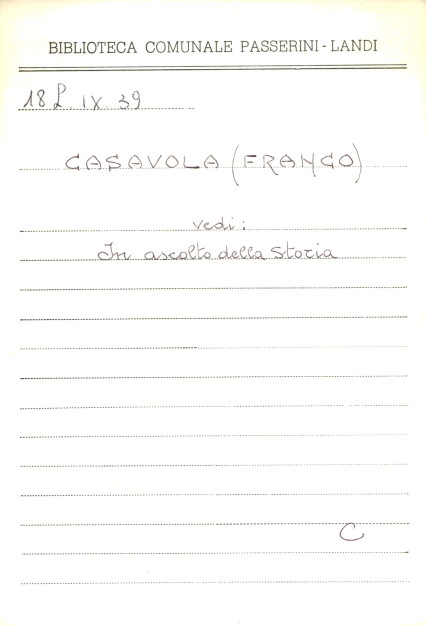 BIBLIOTECA COMUNALE PASSERINI - LANDI
18 L. IX. 39
CASAVOLA (FRANCO)
vedi:
In ascolto della Storia
C